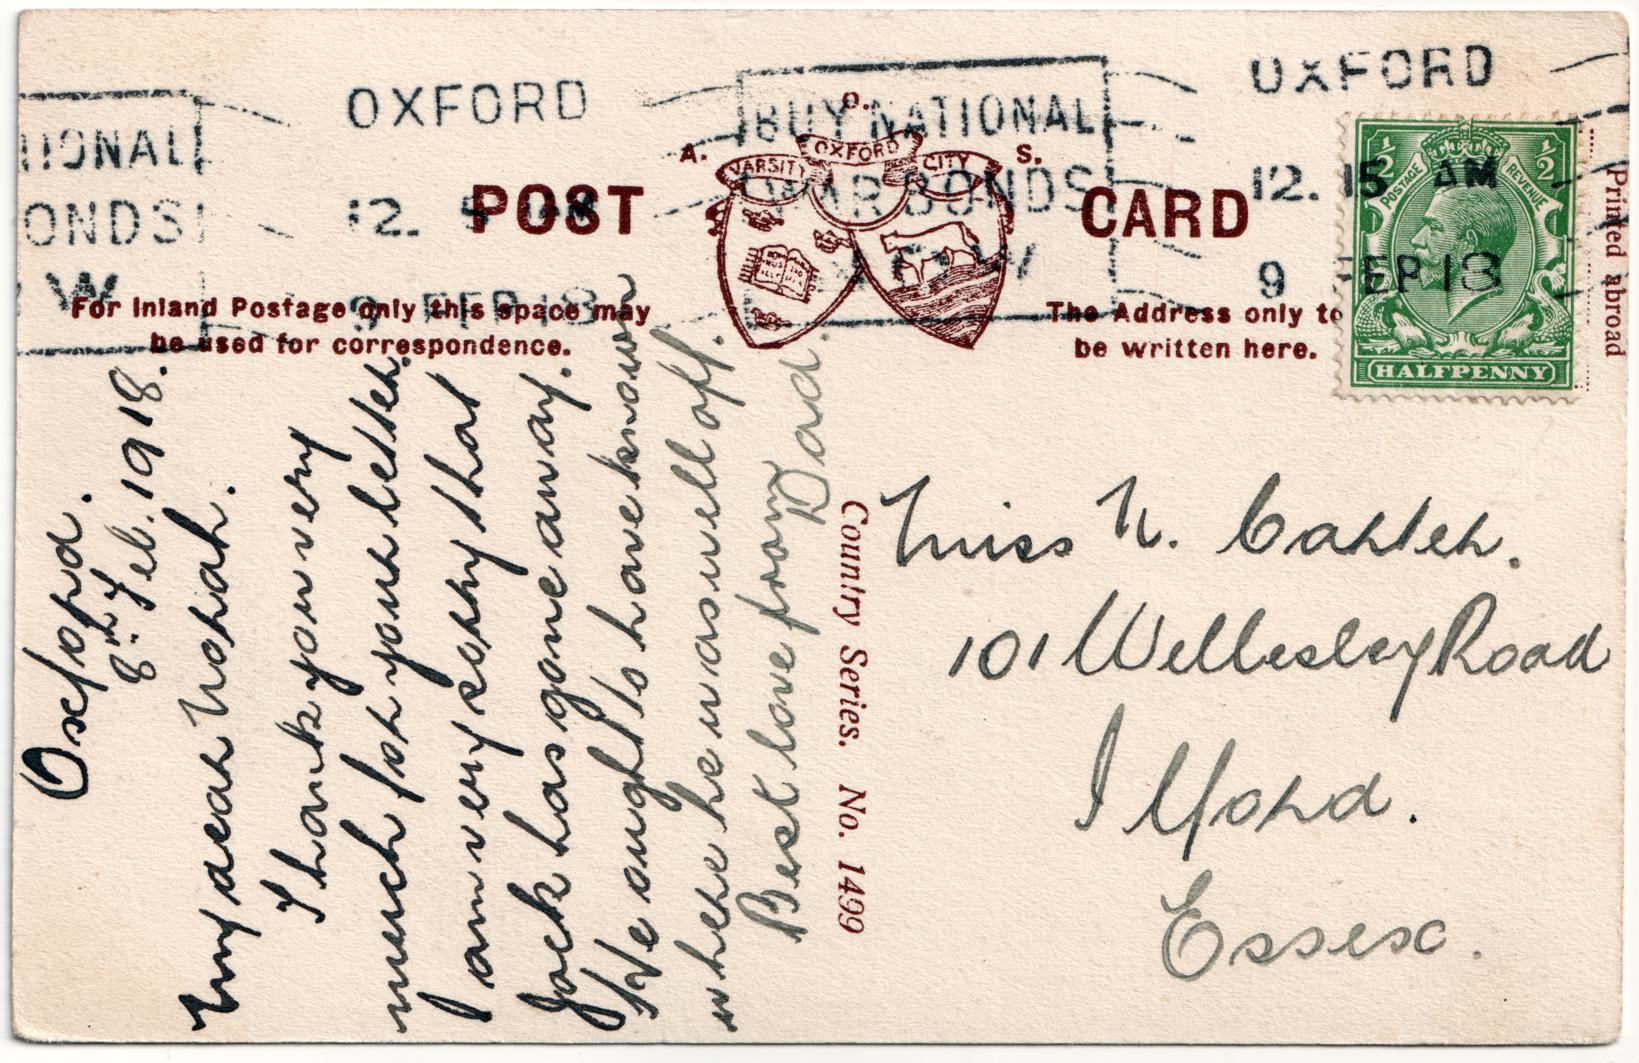 OXFORD
12. 15 AM
9 FEB 18
BUY NATIONAL
WAR BONDS
NOW
OXFORD
12. 15 AM
9 FEP 18
TIONAL
ONDS
W
O.
A.
S.
VARSITY
OXFORD
CITY
POST CARD
For Inland Postage only this space may
be used for correspondence.
The Address only to
be written here.
½
½
POSTAGE
REVENUE
HALFPENNY
Printed abroad
Oxford.
8th Feb. 1918.
My dear Norah.
Thank you very
much for your letter.
I am very sorry that
Jack has gone away.
He aught to have known
where he was well off.
Best love from
Dad.
Country Series. No. 1499
Miss N. Carter.
101 Wellesley Road
Ilford.
Essex.